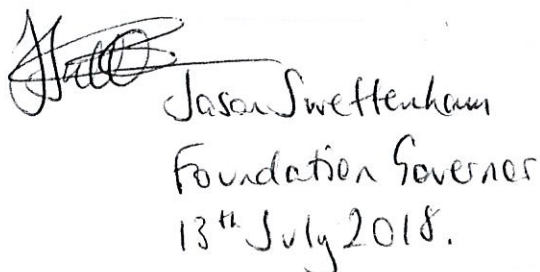 Jason Swettenham
Foundation Governor
13th July 2018.